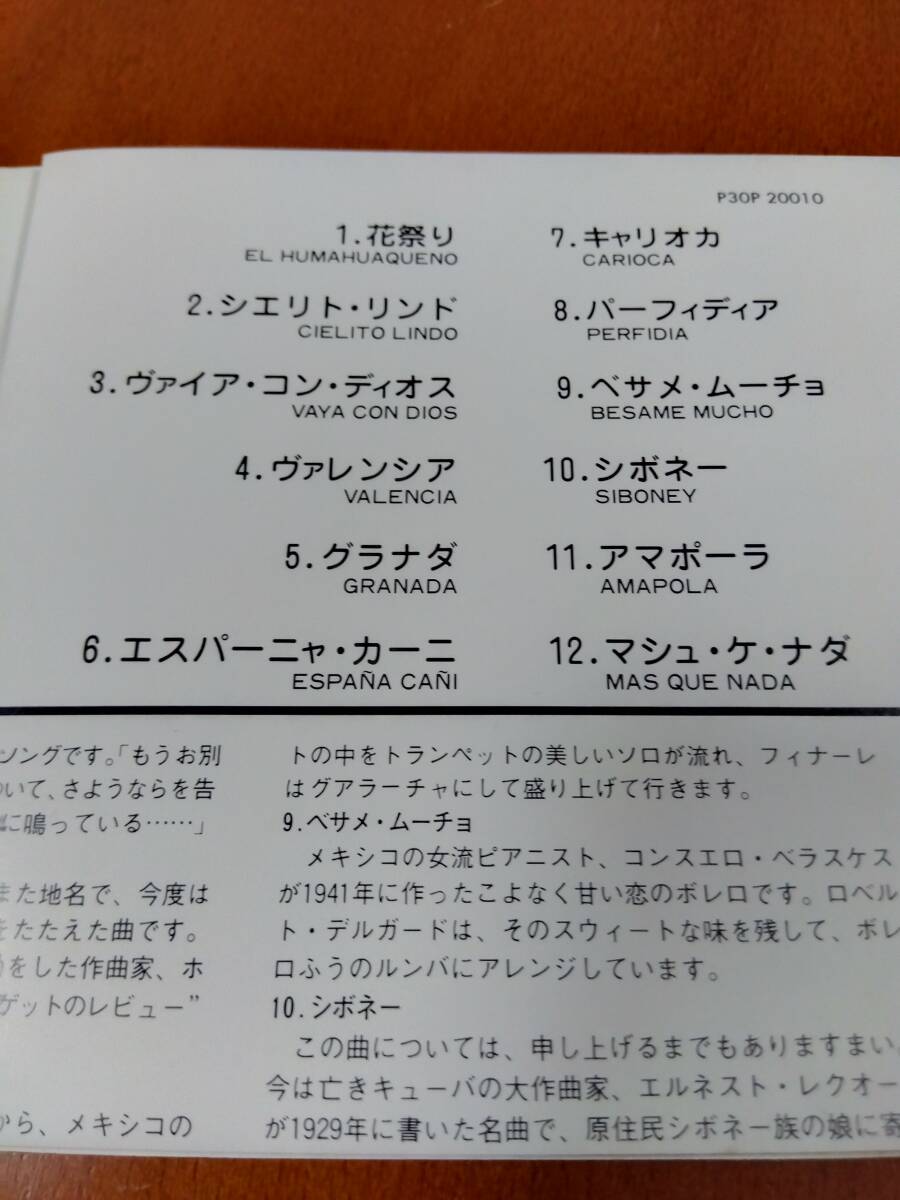 P30P 20010
1.花祭り
EL HUMAHUAQUENO
2.シエリト・リンド
CIELITO LINDO
3.ヴァイア・コン・ディオス
VAYA CON DIOS
4.ヴァレンシア
VALENCIA
5.グラナダ
GRANADA
6.エスパーニャ・カーニ
ESPAÑA CAÑI
7.キャリオカ
CARIOCA
8.パーフィディア
PERFIDIA
9.ベサメ・ムーチョ
BESAME MUCHO
10.シボネー
SIBONEY
11.アマポーラ
AMAPOLA
12.マシュ・ケ・ナダ
MAS QUE NADA
ソングです。「もうお別
いて、さようならを告
に鳴っている……」
また地名で、今度は
をたたえた曲です。
をした作曲家、ホ
ゲットのレビュー”
から、メキシコの
トの中をトランペットの美しいソロが流れ、フィナーレ
はグアラーチャにして盛り上げて行きます。
9.ベサメ・ムーチョ
メキシコの女流ピアニスト、コンスエロ・ベラスケス
が1941年に作ったこよなく甘い恋のボレロです。ロベル
ト・デルガードは、そのスウィートな味を残して、ボレ
ロふうのルンバにアレンジしています。
10.シボネー
この曲については、申し上げるまでもありますまい。
今は亡きキューバの大作曲家、エルネスト・レクオー
が1929年に書いた名曲で、原住民シボネー族の娘に寄